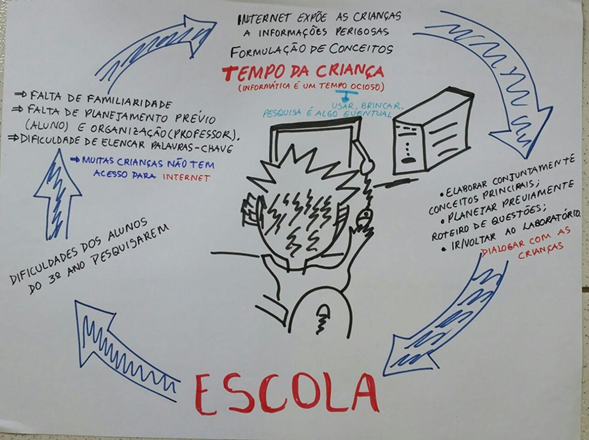 INTERNET EXPÕE AS CRIANÇAS
A INFORMAÇÕES PERIGOSAS
FORMULAÇÃO DE CONCEITOS
TEMPO DA CRIANÇA
(INFORMÁTICA É UM TEMPO OCIOSO)
USAR, BRINCAR.
PESQUISA É ALGO EVENTUAL
⇒ FALTA DE FAMILIARIDADE
⇒ FALTA DE PLANEJAMENTO PRÉVIO
(ALUNO) E ORGANIZAÇÃO (PROFESSOR).
⇒ DIFICULDADE DE ELENCAR PALAVRAS-CHAVE
⇒ MUITAS CRIANÇAS NÃO TEM
ACESSO PARA INTERNET
• ELABORAR CONJUNTAMENTE
CONCEITOS PRINCIPAIS;
• PLANEJAR PREVIAMENTE
ROTEIRO DE QUESTÕES;
• IR/VOLTAR AO LABORATÓRIO
DIALOGAR COM AS
CRIANÇAS
DIFICULDADES DOS ALUNOS
DO 3º ANO PESQUISAREM
ESCOLA